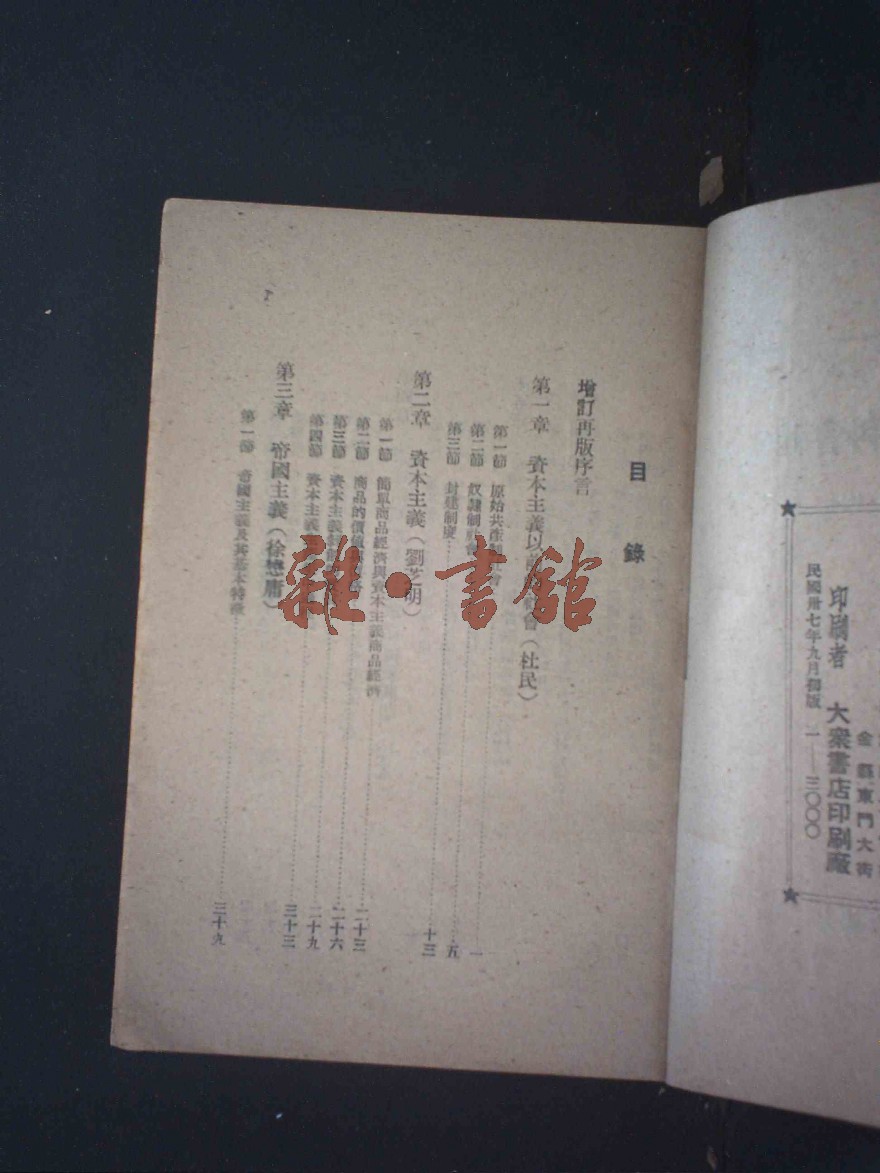 金縣東門大街
印刷者 大衆書店印刷廠
民國卅七年九月初版 一—三〇〇〇
目錄
增訂再版序言
第一章 資本主義以前 會（杜民）
第一節 原始共產社會……一
第二節 奴隸制社會……五
第三節 封建制度……十三
第二章 資本主義（劉芝明）
第一節 簡單商品經濟與資本主義商品經濟……二十三
第二節 商品的價值……二十六
第三節 資本主義……二十九
第四節 資本主義……三十三
第三章 帝國主義（徐懋庸）
第一節 帝國主義及其基本特徵……三十九
雜·書館